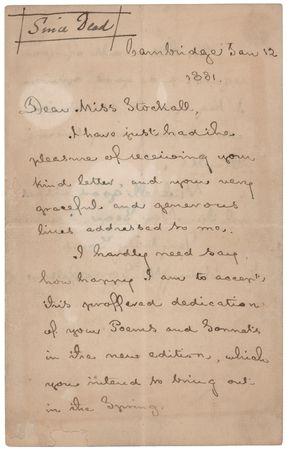 Since Dead
Cambridge Jan 12
1881.
Dear Miss Stockall,
I have just had the
pleasure of receiving your
kind letter, and your very
graceful and generous
lines addressed to me.
I hardly need say
how happy I am to accept
this proffered dedication
of your Poems and Sonnets
in the new edition, which
you intend to bring out
in the Spring.